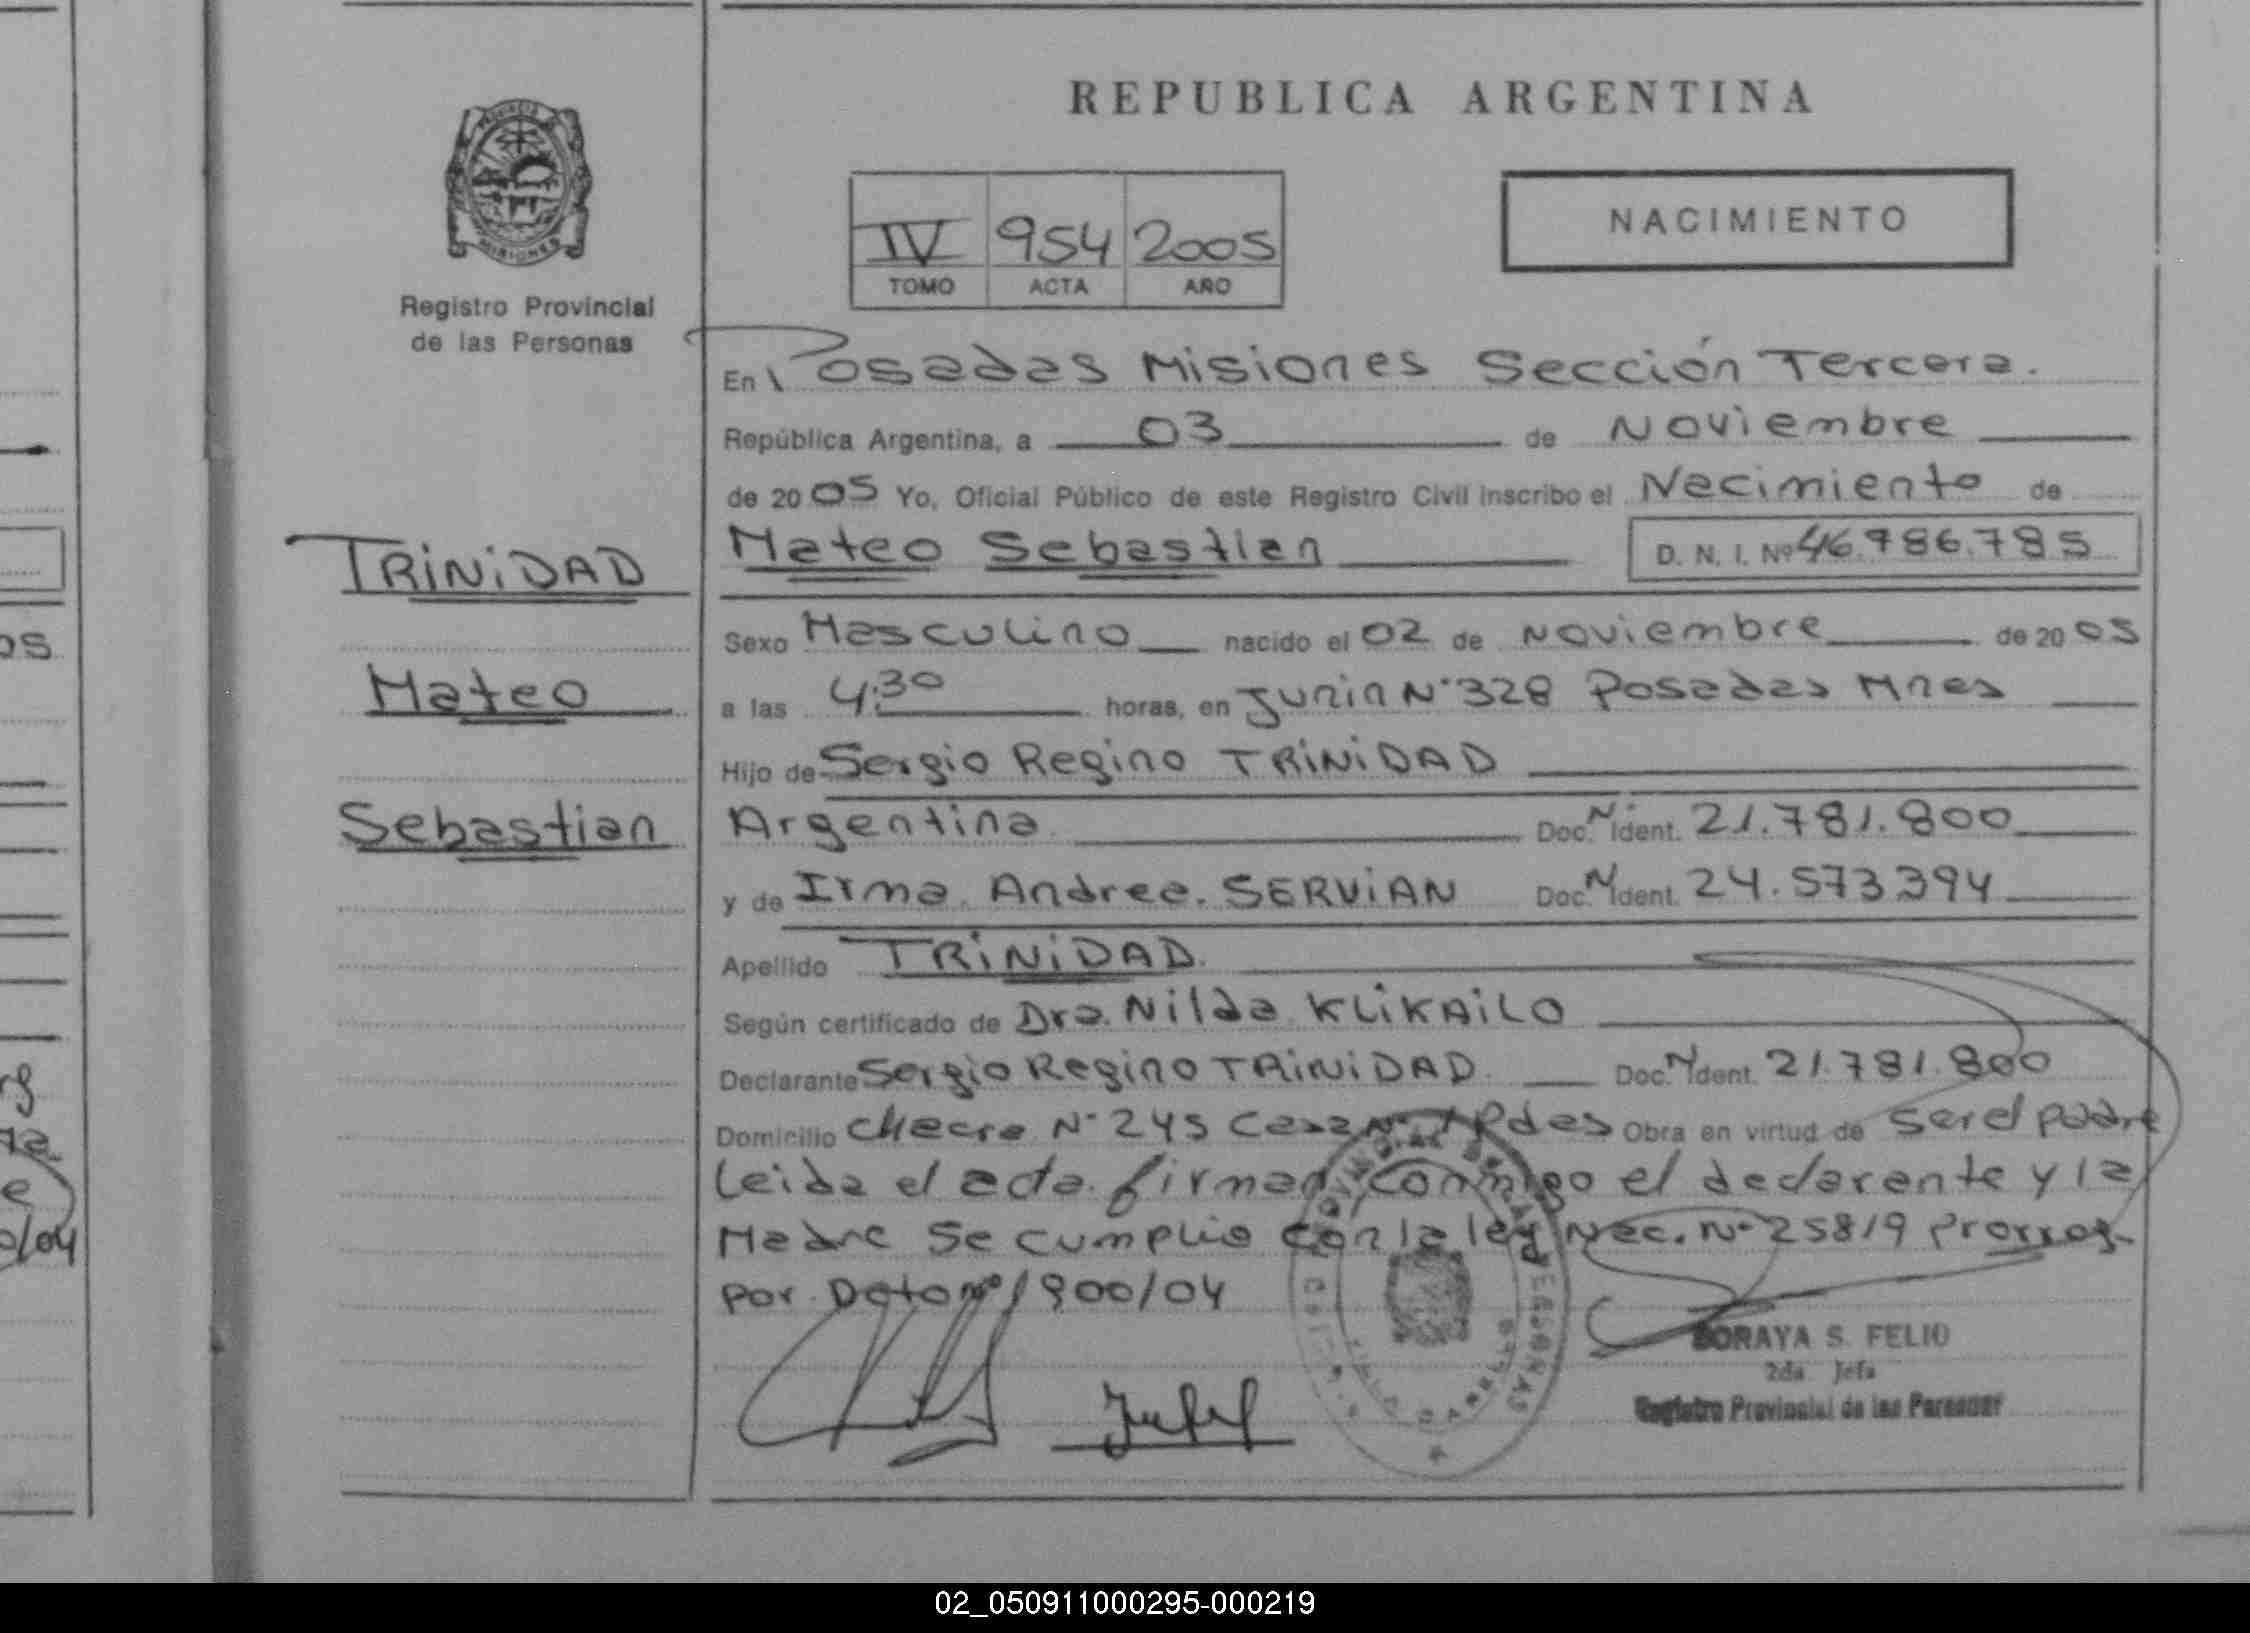 REPUBLICA ARGENTINA
PROVINCIA DE
MISIONES
Registro Provincial
de las Personas
IV 954 2005
TOMO ACTA AÑO
NACIMIENTO
En Posadas Misiones Sección Tercera.
República Argentina, a 03 de Noviembre
de 2005 Yo, Oficial Público de este Registro Civil inscribo el Nacimiento de
Mateo Sebastian D. N. I. Nº 46.786.785
TRINIDAD
Mateo
Sebastian
Sexo Masculino nacido el 02 de Noviembre de 2005
a las 4:30 horas, en Junin N° 328 Posadas Mnes
Hijo de Sergio Regino TRINIDAD
Argentina Doc. N Ident. 21.781.800
y de Irma Andrea SERVIAN Doc. N Ident. 24.573394
Apellido TRINIDAD.
Según certificado de Dra. Nilda KLIKAILO
Declarante Sergio Regino TRINIDAD. Doc. N Ident. 21.781.800
Domicilio Chacra N° 245 Casa N° 1 Pdas Obra en virtud de ser el padre
Leida el acta firman conmigo el declarante y la
Madre Se cumplio con la ley Nac. N° 25819 Prorrog-
por Dcto nº 1900/04
SORAYA S. FELIU
2da. Jefa
Registro Provincial de las Personas
02_050911000295-000219